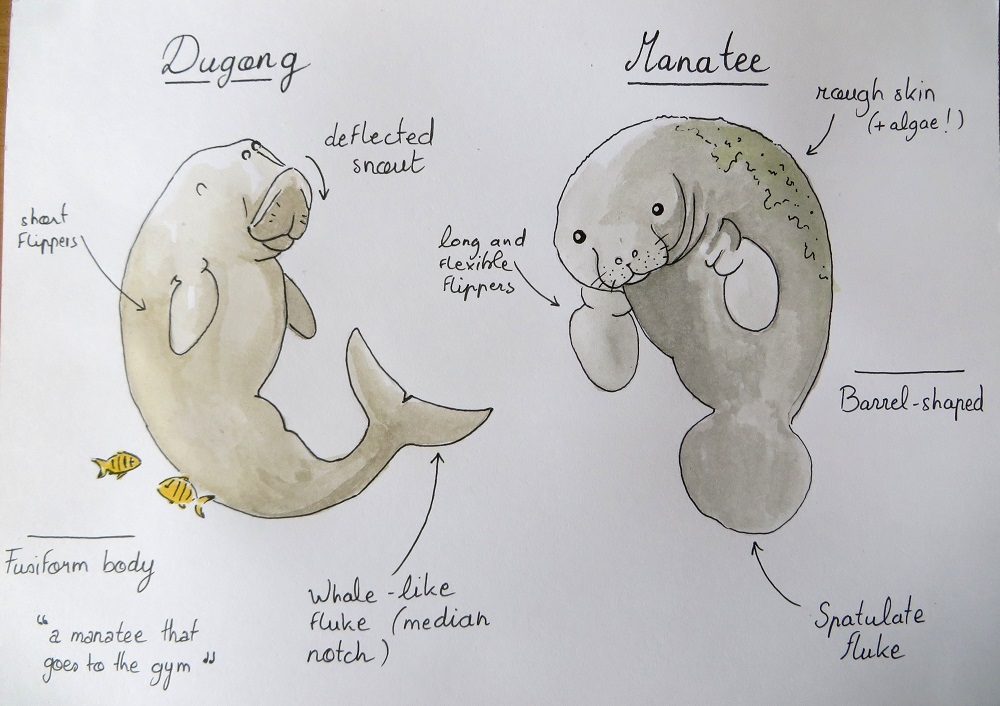 Dugong
deflected
snout
short
Flippers
Fusiform body
"a manatee that
goes to the gym"
Whale-like
fluke (median
notch)
Manatee
rough skin
(+algae!)
long and
flexible
flippers
Barrel-shaped
Spatulate
fluke